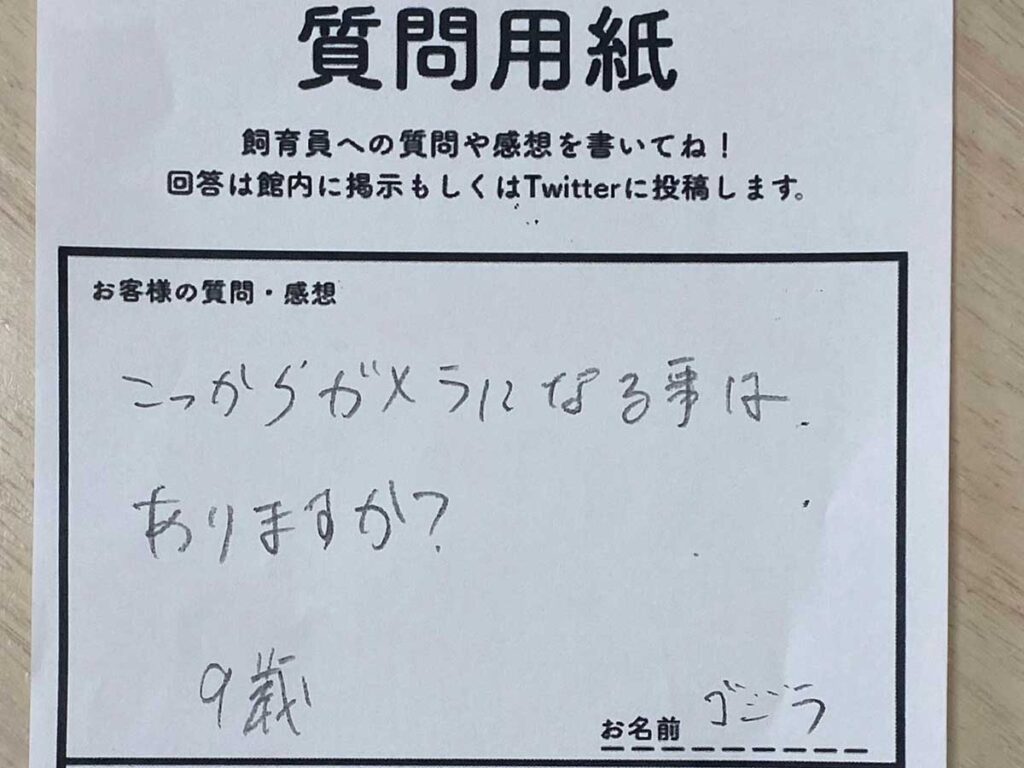 質問用紙
飼育員への質問や感想を書いてね！
回答は館内に掲示もしくはTwitterに投稿します。
お客様の質問・感想
こっからガメラになる事は
ありますか？
9歳
お名前 ゴジラ